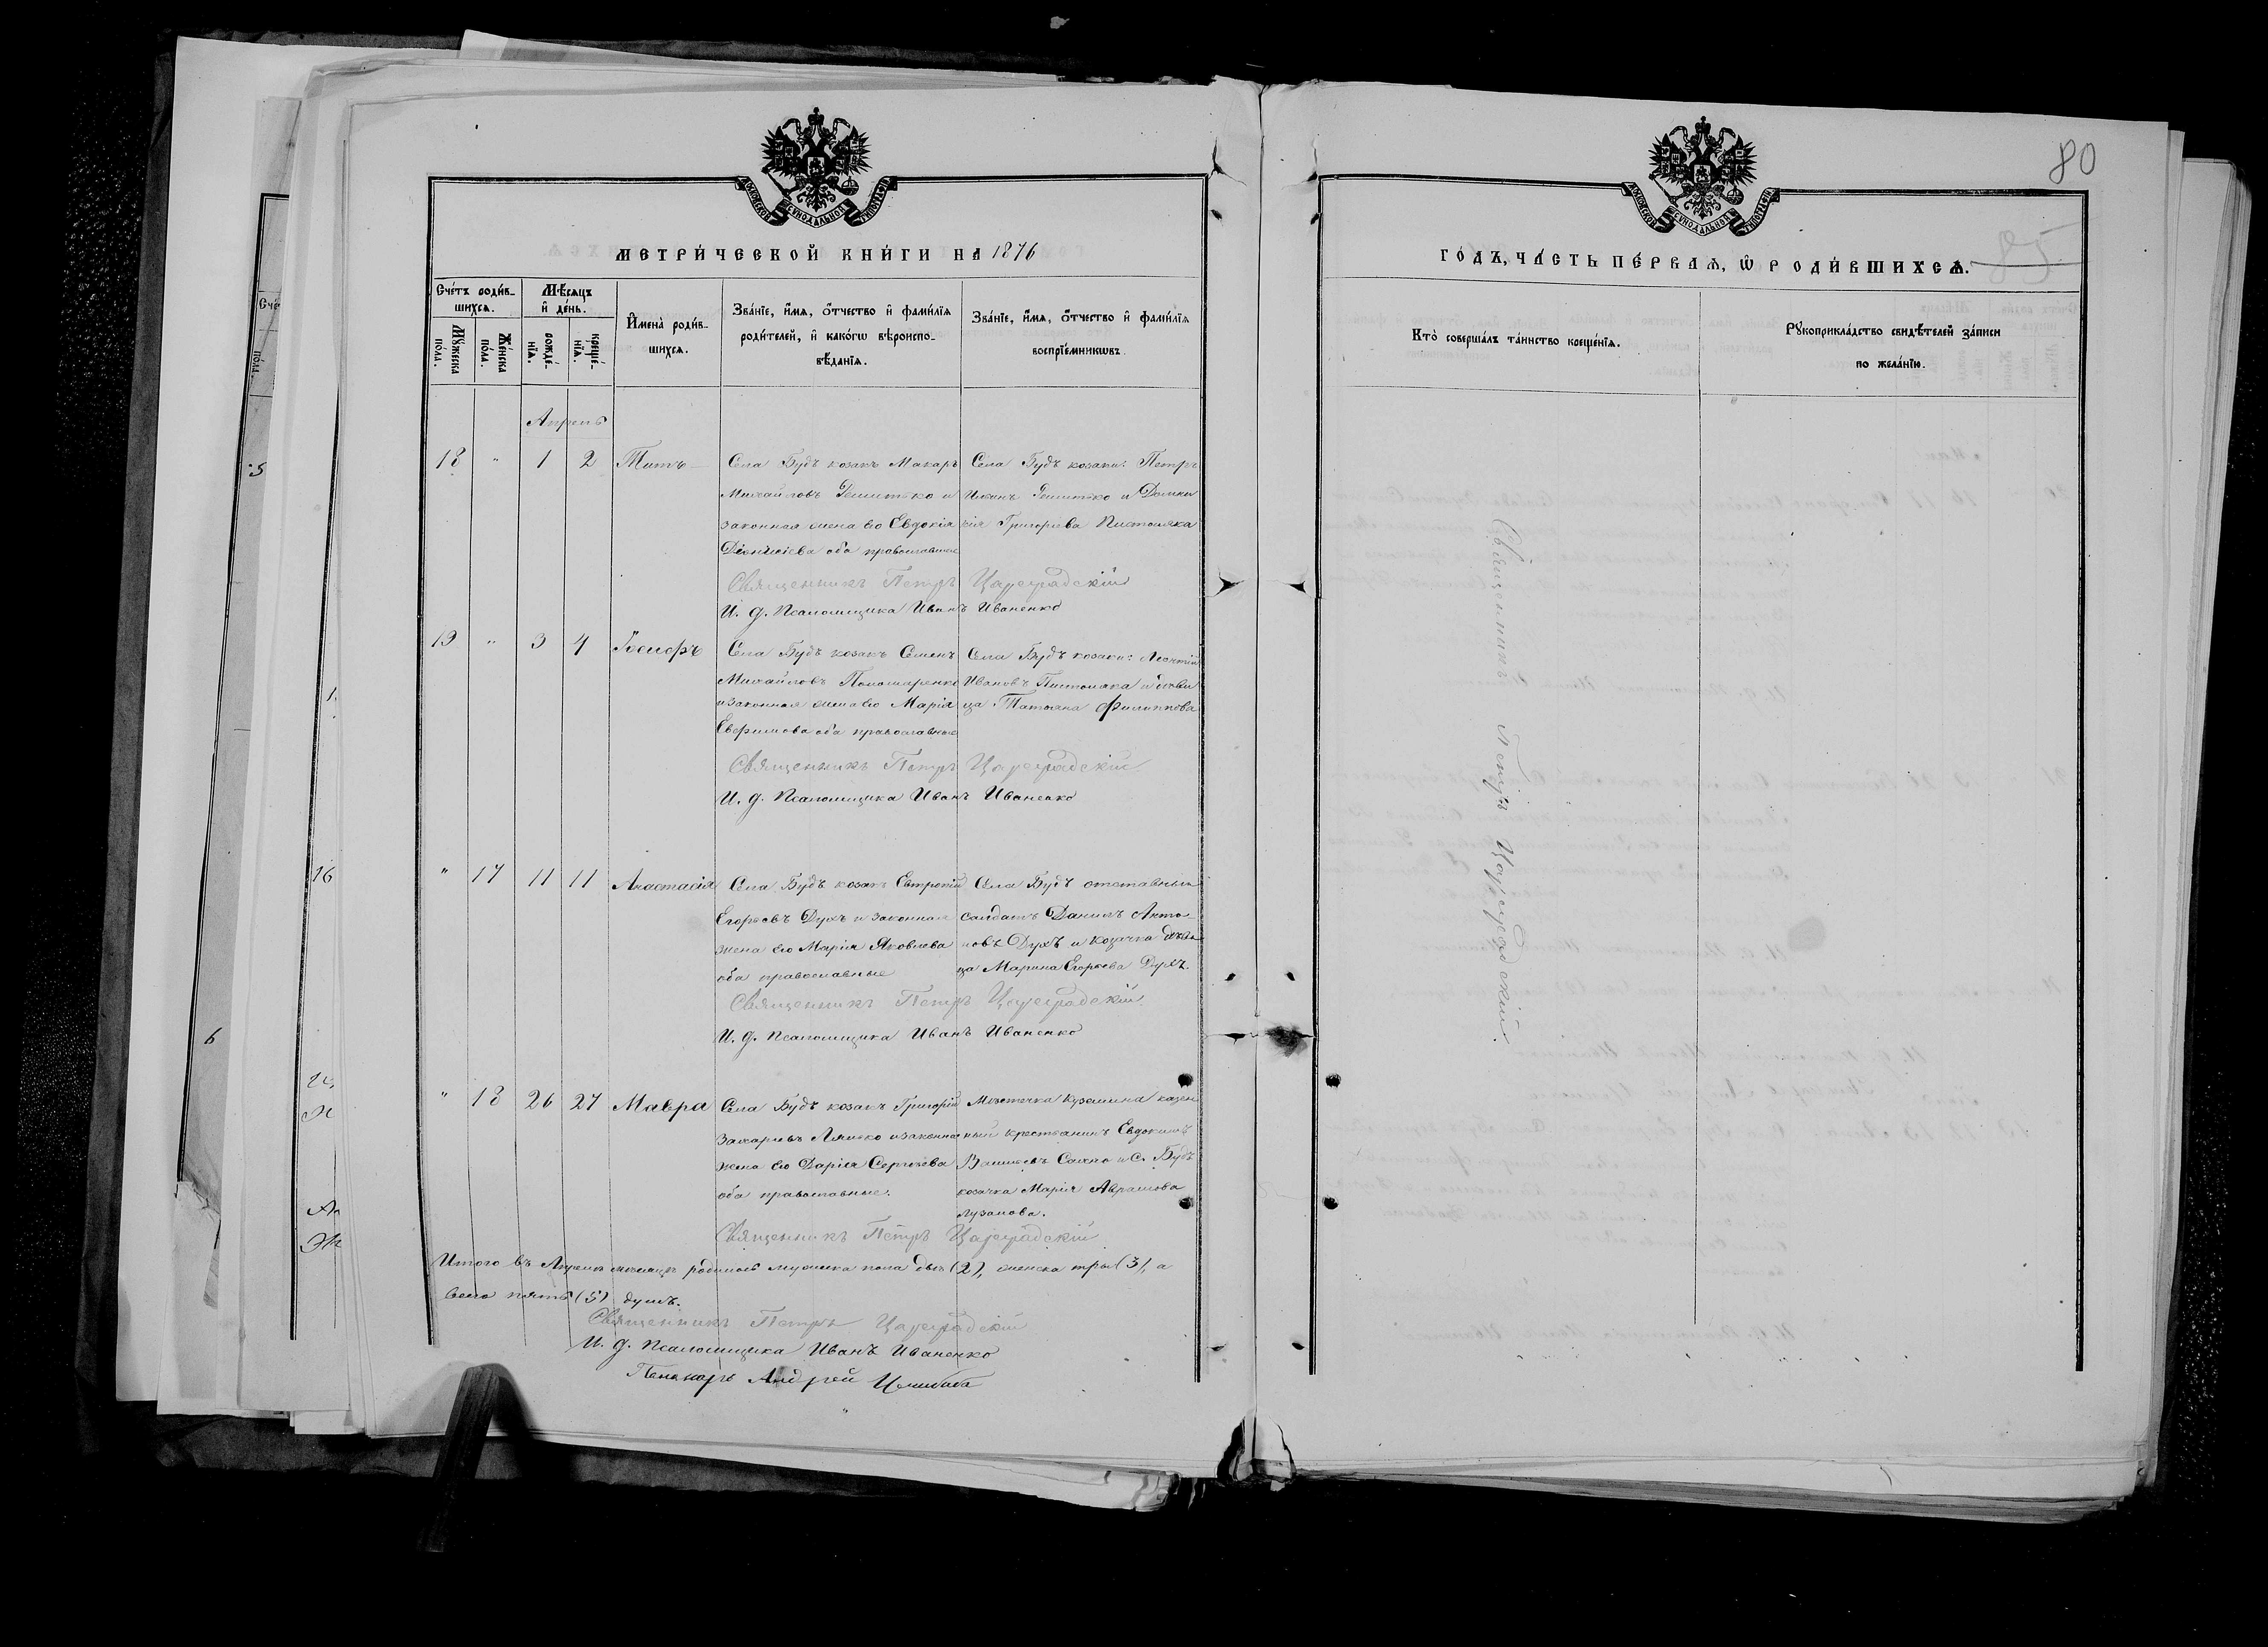 МЕТРИ́ЧЕСКОЙ КНИ́ГИ НА 1876
Сче́тъ роди́в-
шихся.
Му́жеска
по́ла.
Же́нска
по́ла.
Мѣ́сяцъ
и҆ де́нь.
рожде́-
нїя.
креще́-
нїя.
И҆мена̀ роди́в-
шихся.
Зва́нїе, и҆́мя, ѻ҆́тчество и҆ фами́лїя
роди́телей, и҆ како́гѡ вѣроиспо-
вѣ́данїя.
Зва́нїе, и҆́мя, ѻ҆́тчество и҆ фами́лїя
воспрїе́мникѡвъ.
Апрель
18 " 1 2 Титъ
Села Будъ козакъ Макаръ
Михайловъ и
законная жена его Евдокія
оба православные
Села Будъ козаки: Петръ
и Домни
кія Григорьева
Священникъ Петръ Цареградскій
И. д. Псаломщика Иванъ Иваненко
19 " 3 4
Села Будъ козакъ Семенъ
Михайловъ Пономаренко
и законная жена его Марія
Евфимова оба православные
Села Будъ козаки: Леонтій
Ивановъ и деви
ца Татьяна Филиппова
Священникъ Петръ Цареградскій
И. д. Псаломщика Иванъ Иваненко
" 17 11 11 Анастасія
Села Будъ козакъ Евтропій
Егорьевъ Духъ и законная
жена его Марія Яковлева
оба православные
Села Будъ отставный
солдатъ Данилъ Анто-
новъ Духъ и козачка деви
ца Марина Егорьева Духъ.
Священникъ Петръ Цареградскій
И. д. Псаломщика Иванъ Иваненко
" 18 26 27 Мавра
Села Будъ козакъ Григорій
Захарьевъ и законная
жена его Дарія Сергѣева
оба православные.
Мѣстечка Куземина казен
ный крестьянинъ Евдокимъ
и С. Будъ
козачка Марія Аврамова
Лузанова.
Священникъ Петръ Цареградскій
Итого въ Апрелѣ мѣсяцѣ родилось мужеска пола два (2), женска три (3), а
всего пять (5) душъ.
Священникъ Петръ Цареградскій
И. д. Псаломщика Иванъ Иваненко
Пономарь Андрей
80
85
ГО́ДЪ, ЧА́СТЬ ПЕ́РВАЯ, Ѡ҆ РОДИ́ВШИХСЯ.
Кто̀ соверша́лъ та́инство креще́нїя.
Рꙋкоприкла́дство свидѣ́телей за́писи
по жела́нїю.
Священникъ Петръ Цареградскій.